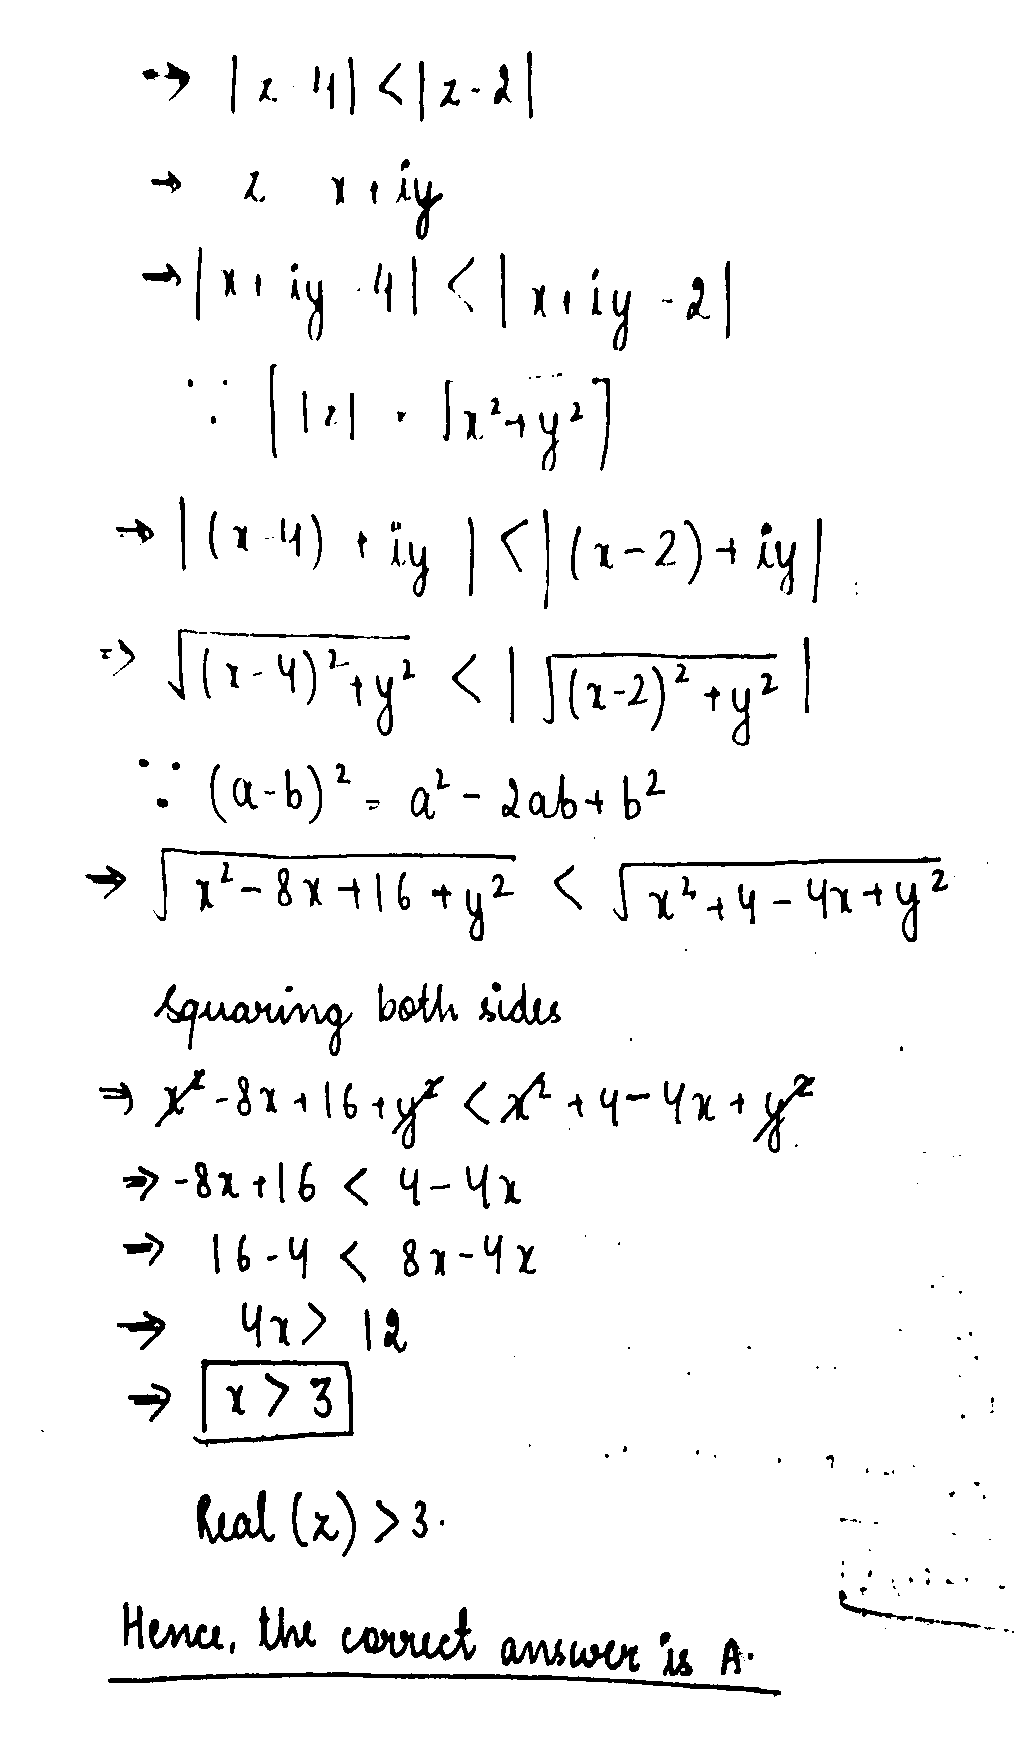 → |z-4| < |z-2|
→ z x+iy
→ |x+iy-4| < |x+iy-2|
∵ [|z| = √x²+y²]
→ |(x-4)+iy| < |(x-2)+iy|
⇒ √(x-4)²+y² < |√(x-2)²+y²|
∵ (a-b)² = a²-2ab+b²
⇒ √x²-8x+16+y² < √x²+4-4x+y²
squaring both sides
⇒ x²-8x+16+y² < x²+4-4x+y²
⇒ -8x+16 < 4-4x
⇒ 16-4 < 8x-4x
⇒ 4x > 12
⇒ x > 3
Real (z) > 3.
Hence, the correct answer is A.